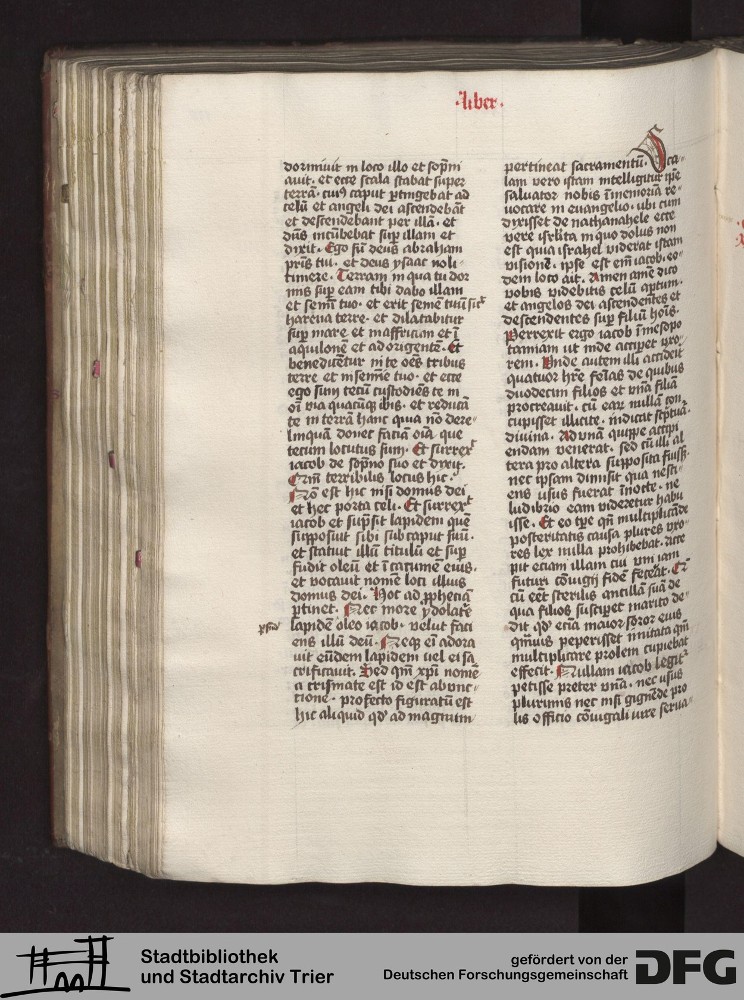 ·liber·
dormiuit in loco illo et sōpni
auit· et ecce scala stabat super
terrā· cuiꝰ caput ꝑtingebat ad
celū et angeli dei ascendebāt
et descendebant per illā· et
dn̄s incūbebat suꝑ illam et
dixit· Ego sū deus abraham
pr̄is tui· et deus ysaac noli
timere· Terram in qua tu dor
mis suꝑ eam tibi dabo illam
et semī tuo· et erit semē tuū sic̄
harena terre· et dilatabitur
suꝑ mare et in affricum et ī
aquilonē et ad origentē· Et
benedicētur in te oēs tribus
terre et in semine tuo· et ecce
ego sum tecū custodiēs te in
oī via quacūqꝫ ibis· et reducā
te in terrā hanc quia nō dere⸗
linquā donec faciā oīa que
tecum locutus sum· Et surrex̄
iacob de sōpno suo et dixit·
Qm̄ terribilis locus hic·
Nō est hic nisi domus dei
et hec porta celi· Et surrex̄
iacob et sūpsit lapidem quē
supposuit sibi sub caput suū·
et statuit illū titulū et suꝑ
fudit oleū et ī cacumē eius·
et vocauit nomē loci illius
domus dei· Hoc ad ꝓphetiā
ꝑtinet· Nec more ydolatre
lapidē oleo iacob· velut faci
ens illū deū· Neqꝫ eī adora
uit eūdem lapidem uel ei sa
crificauit· Sed qm̄ xp̄i nomē
a crismate est id est ab unc⸗
tione· profecto figuratū est
hic aliquid qd̓ ad magnum
pertineat sacramentū· Sca⸗
lam vero istam intelligitur ip̄e
saluator nobis ī memoriā re⸗
uocare in euangelio· ubi cum
dixisset de nathanahele ecce
vere isrl̄ita in quo dolus non
est quia israhel viderat istam
visionē· ipse est em̄ iacob· eo⸗
dem loco ait· Amen amē dico
vobis videbitis celū aꝑtum·
et angelos dei ascendentes et
descendentes suꝑ filiū hoīs·
Perrexit ergo iacob ī mesopo
tamiam ut inde acciꝑet vxo⸗
rem· Unde autem illi accidit
quatuor hr̄e feīas de quibus
duodecim filios et vnā filiā
procreauit· cū earꝫ nullā con⸗
cupisset illicite· indicat sc̄ptura
diuina· Ad vnā quippe accipi
endam venerat· sed cū illi al
tera pro altera supposita fuiss̄·
nec ipsam dimisit qua nesci⸗
ens usus fuerat ī nocte· ne
ludibrio eam videretur habu
isse· Et eo tꝑe qn̄ multiplicāde
posteritatis causa plures vxo⸗
res lex nulla prohibebat· acce
pit eciam illam cui vni iam
futuri cōiugij fidē fecerat· Q̄
cū eēt sterilis ancillā suā de
qua filios susciꝑet marito de⸗
dit qd̓ eciā maior soror eius
qm̄uis peperisset imitata qm̄
multiplicare prolem cupiebat
effecit· Nullam iacob legit̄
petisse preter vnā· nec usus
plurimis nec nisi gignēde pro
lis officio cōiugali iure serua⸗
Stadtbibliothek
und Stadtarchiv Trier
gefördert von der
Deutschen Forschungsgemeinschaft
DFG